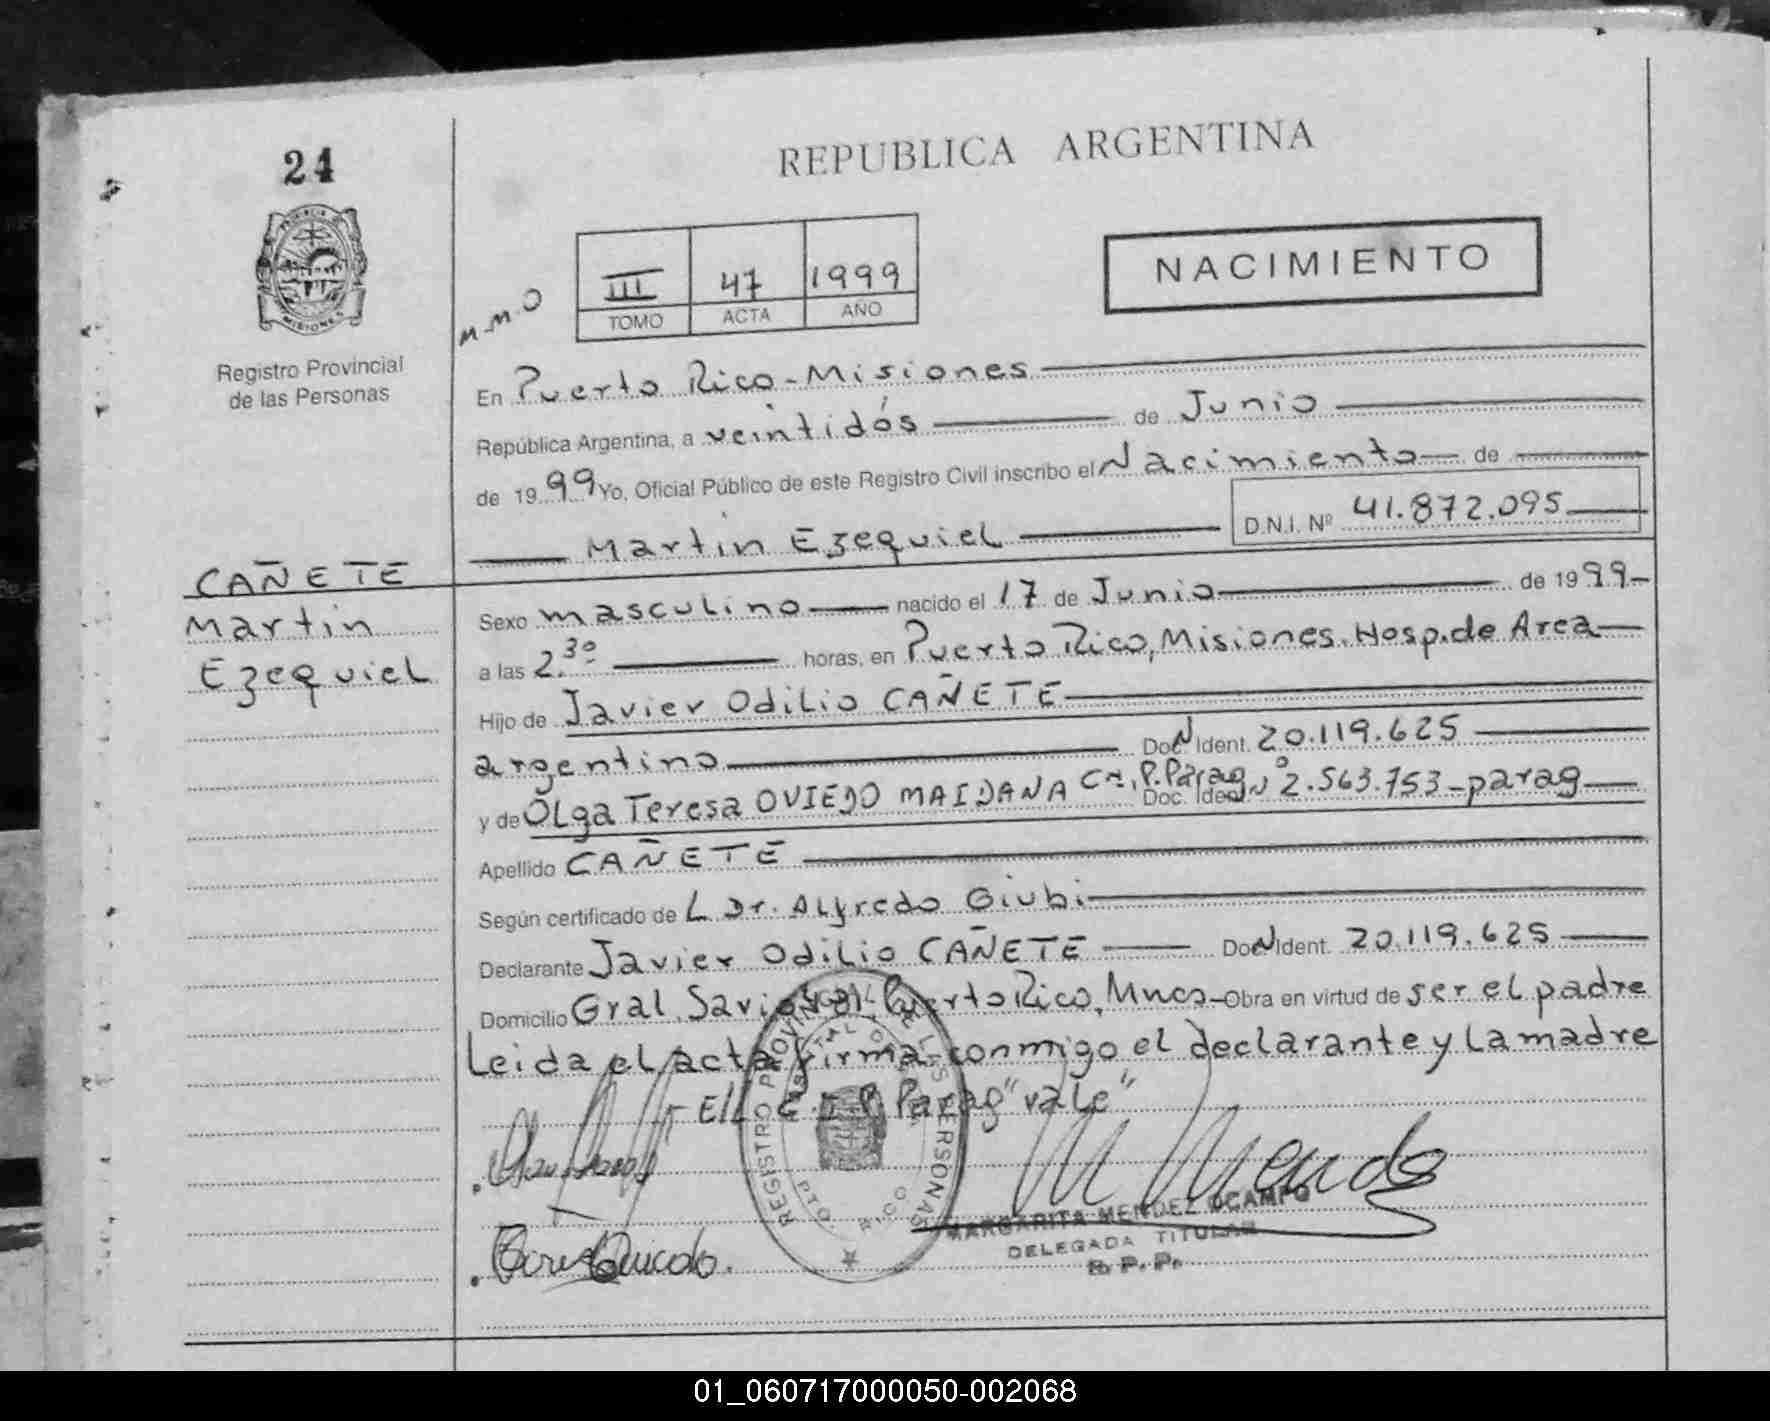 24
REPUBLICA ARGENTINA
PROVINCIA DE
MISIONES
Registro Provincial
de las Personas
M.M.O
III 47 1999
TOMO ACTA AÑO
NACIMIENTO
En Puerto Rico-Misiones
República Argentina, a veintidós de Junio
de 1999 Yo, Oficial Público de este Registro Civil inscribo el Nacimiento de
Martin Ezequiel D.N.I. Nº 41.872.095
CAÑETE
Martin
Ezequiel
Sexo masculino nacido el 17 de Junio de 1999
a las 2.30 horas, en Puerto Rico, Misiones. Hosp. de Area
Hijo de Javier Odilio CAÑETE
argentino Doc. N Ident. 20.119.625
y de Olga Teresa OVIEDO MAIDANA P. Parag Doc. Ident. Nº 2.563.753-parag
Apellido CAÑETE
Según certificado de L Dr. Alfredo Giubi
Declarante Javier Odilio CAÑETE Doc. N Ident. 20.119.625
Domicilio Gral. Puerto Rico, Mnes-Obra en virtud de ser el padre
Leida el acta firma conmigo el declarante y la madre
P. Parag "vale"
REGISTRO PROVINCIAL DE LAS PERSONAS
PTO. RICO
MARGARITA MENDEZ OCAMPO
DELEGADA TITULAR
R. P. P.
01_060717000050-002068